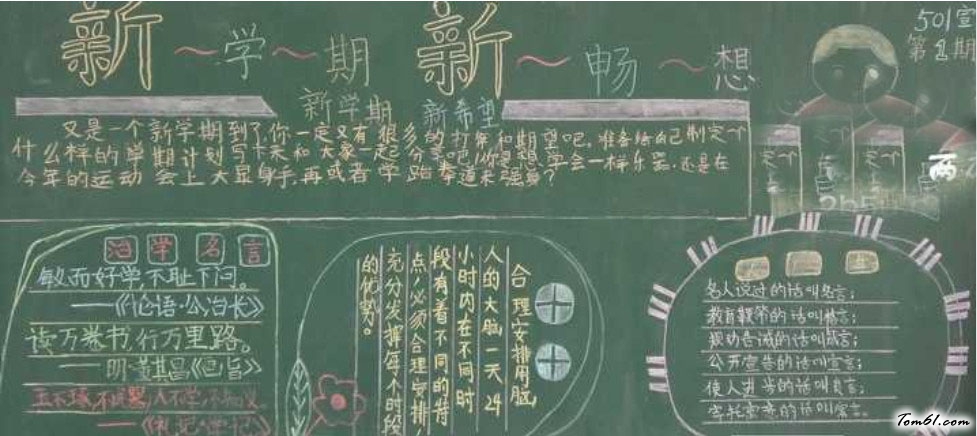 新~学~期 新~畅~想
501宣
第2期
新学期 新希望
又是一个新学期到了,你一定又有很多的打算和期望吧。准备给自己制定个
什么样的学期计划 写下来和大家一起分享吧!你是想学会一样乐器,还是在
今年的运动会上大显身手,再或者学跆拳道来强身?
治学名言
敏而好学,不耻下问。
——《论语·公冶长》
读万卷书,行万里路。
——明·董其昌《画旨》
玉不琢,不成器,人不学,不知义。
——《礼记·学记》
合理安排用脑,
人的大脑一天24
小时内在不同时
段有着不同的特
点,必须合理安排,
充分发挥每个时段
的优势。
名人说过的话叫名言;
教育
的话叫
言;
劝告
诫的话叫
言;
公开宣告的话叫宣言;
使人进步的话叫良言;
的话叫寓言。
Tom61.com